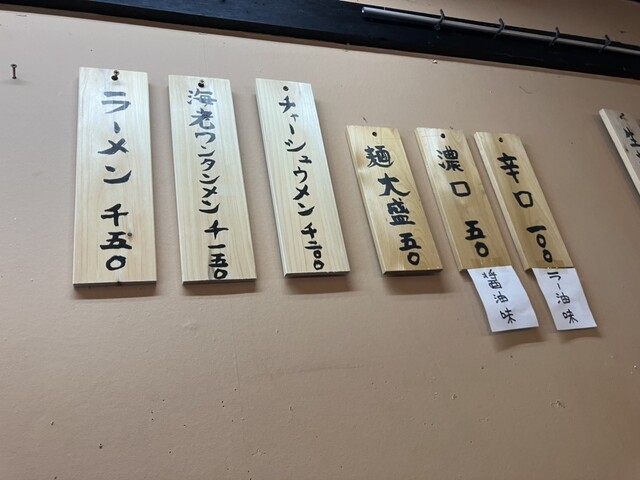 ラーメン 千五〇
海老ワンタンメン 千一五〇
チャーシュウメン 千二〇〇
麺大盛 五〇
濃口 五〇
醤油味
辛口 一〇〇
ラー油味
生